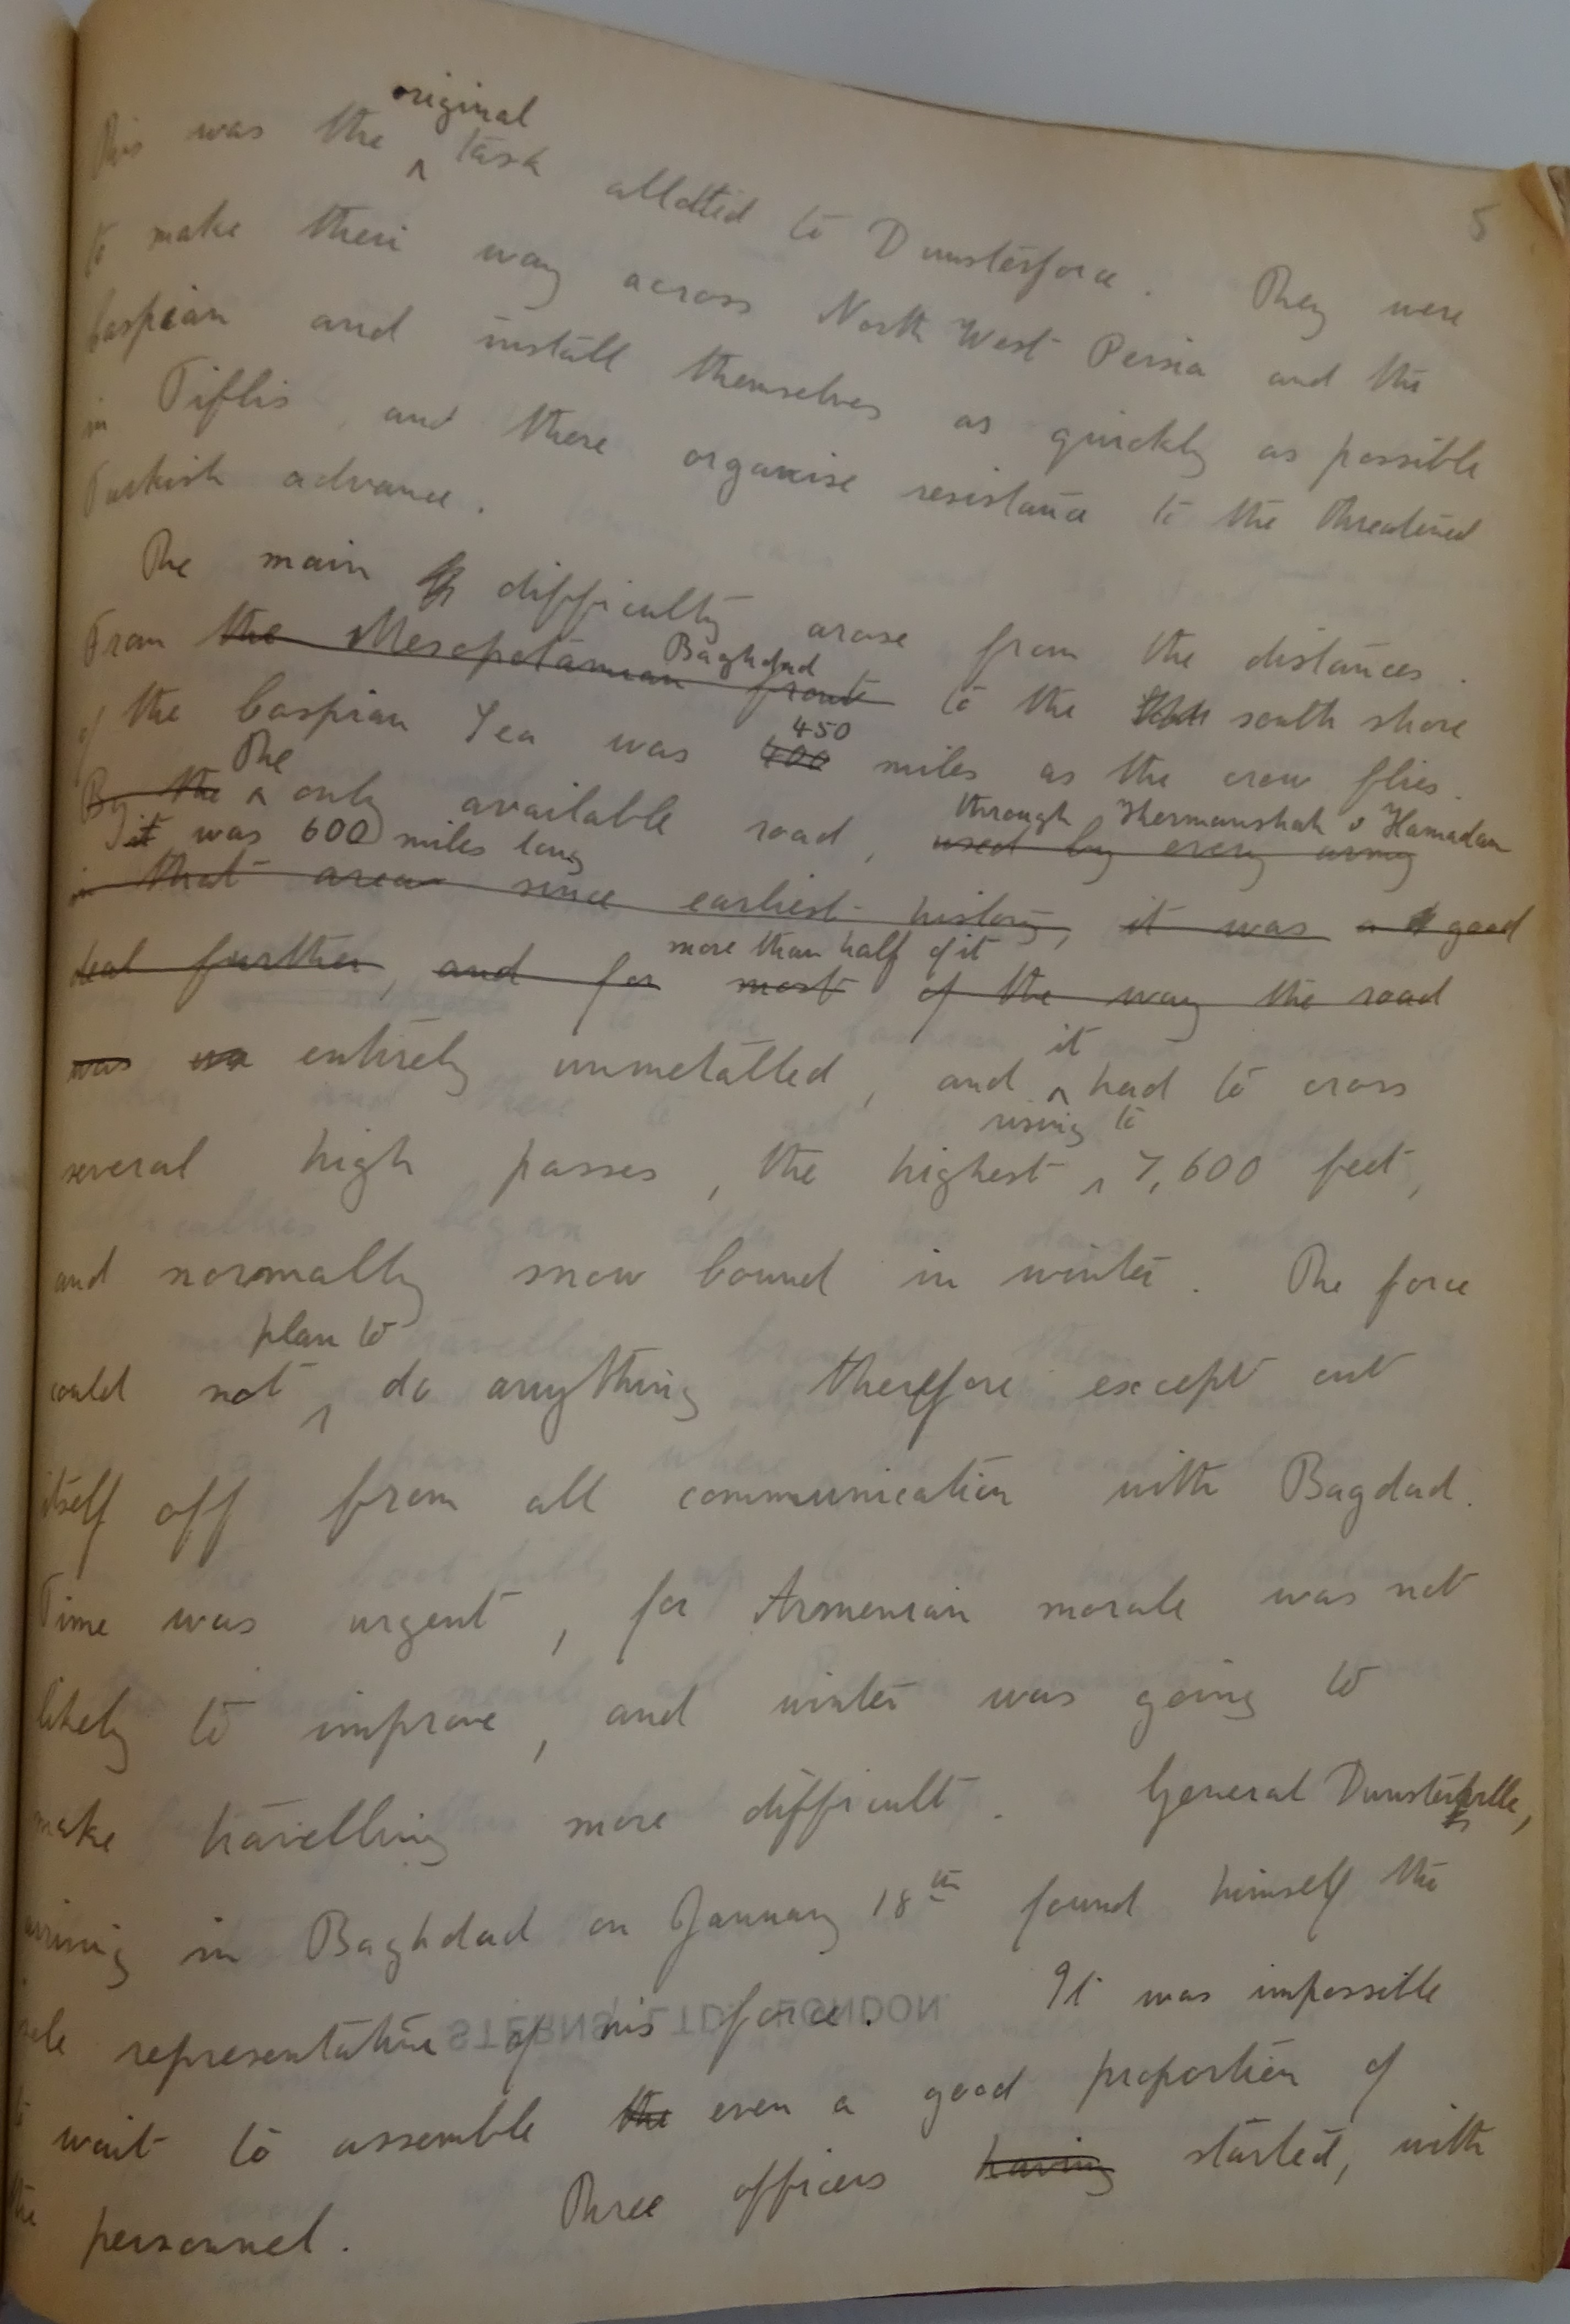 5
This was the original task allotted to Dunsterforce. They were
to make their way across North West Persia and the
Caspian and install themselves as quickly as possible
in Tiflis, and there organise resistance to the threatened
Turkish advance.
The main difficulty arose from the distances.
From the Mesopotamian front Baghdad to the south shore
of the Caspian Sea was 400 450 miles as the crow flies.
By the The only available road, used by every army through Khermanshah & Hamadan
it was 600 miles long
in that area since earliest history, it was a good
deal further, and for most more than half of it of the way the road
was entirely unmetalled, and it had to cross
several high passes, the highest rising to 7,600 feet,
and normally snow bound in winter. The force
could not plan to do anything therefore except cut
itself off from all communication with Bagdad.
Time was urgent, for Armenian morale was not
likely to improve, and winter was going to
make travelling more difficult. General Dunsterville,
arriving in Baghdad on January 18th found himself the
sole representative of his force. It was impossible
to wait to assemble the even a good proportion of
the personnel. Three officers having started, with
STERNS LTD LONDON